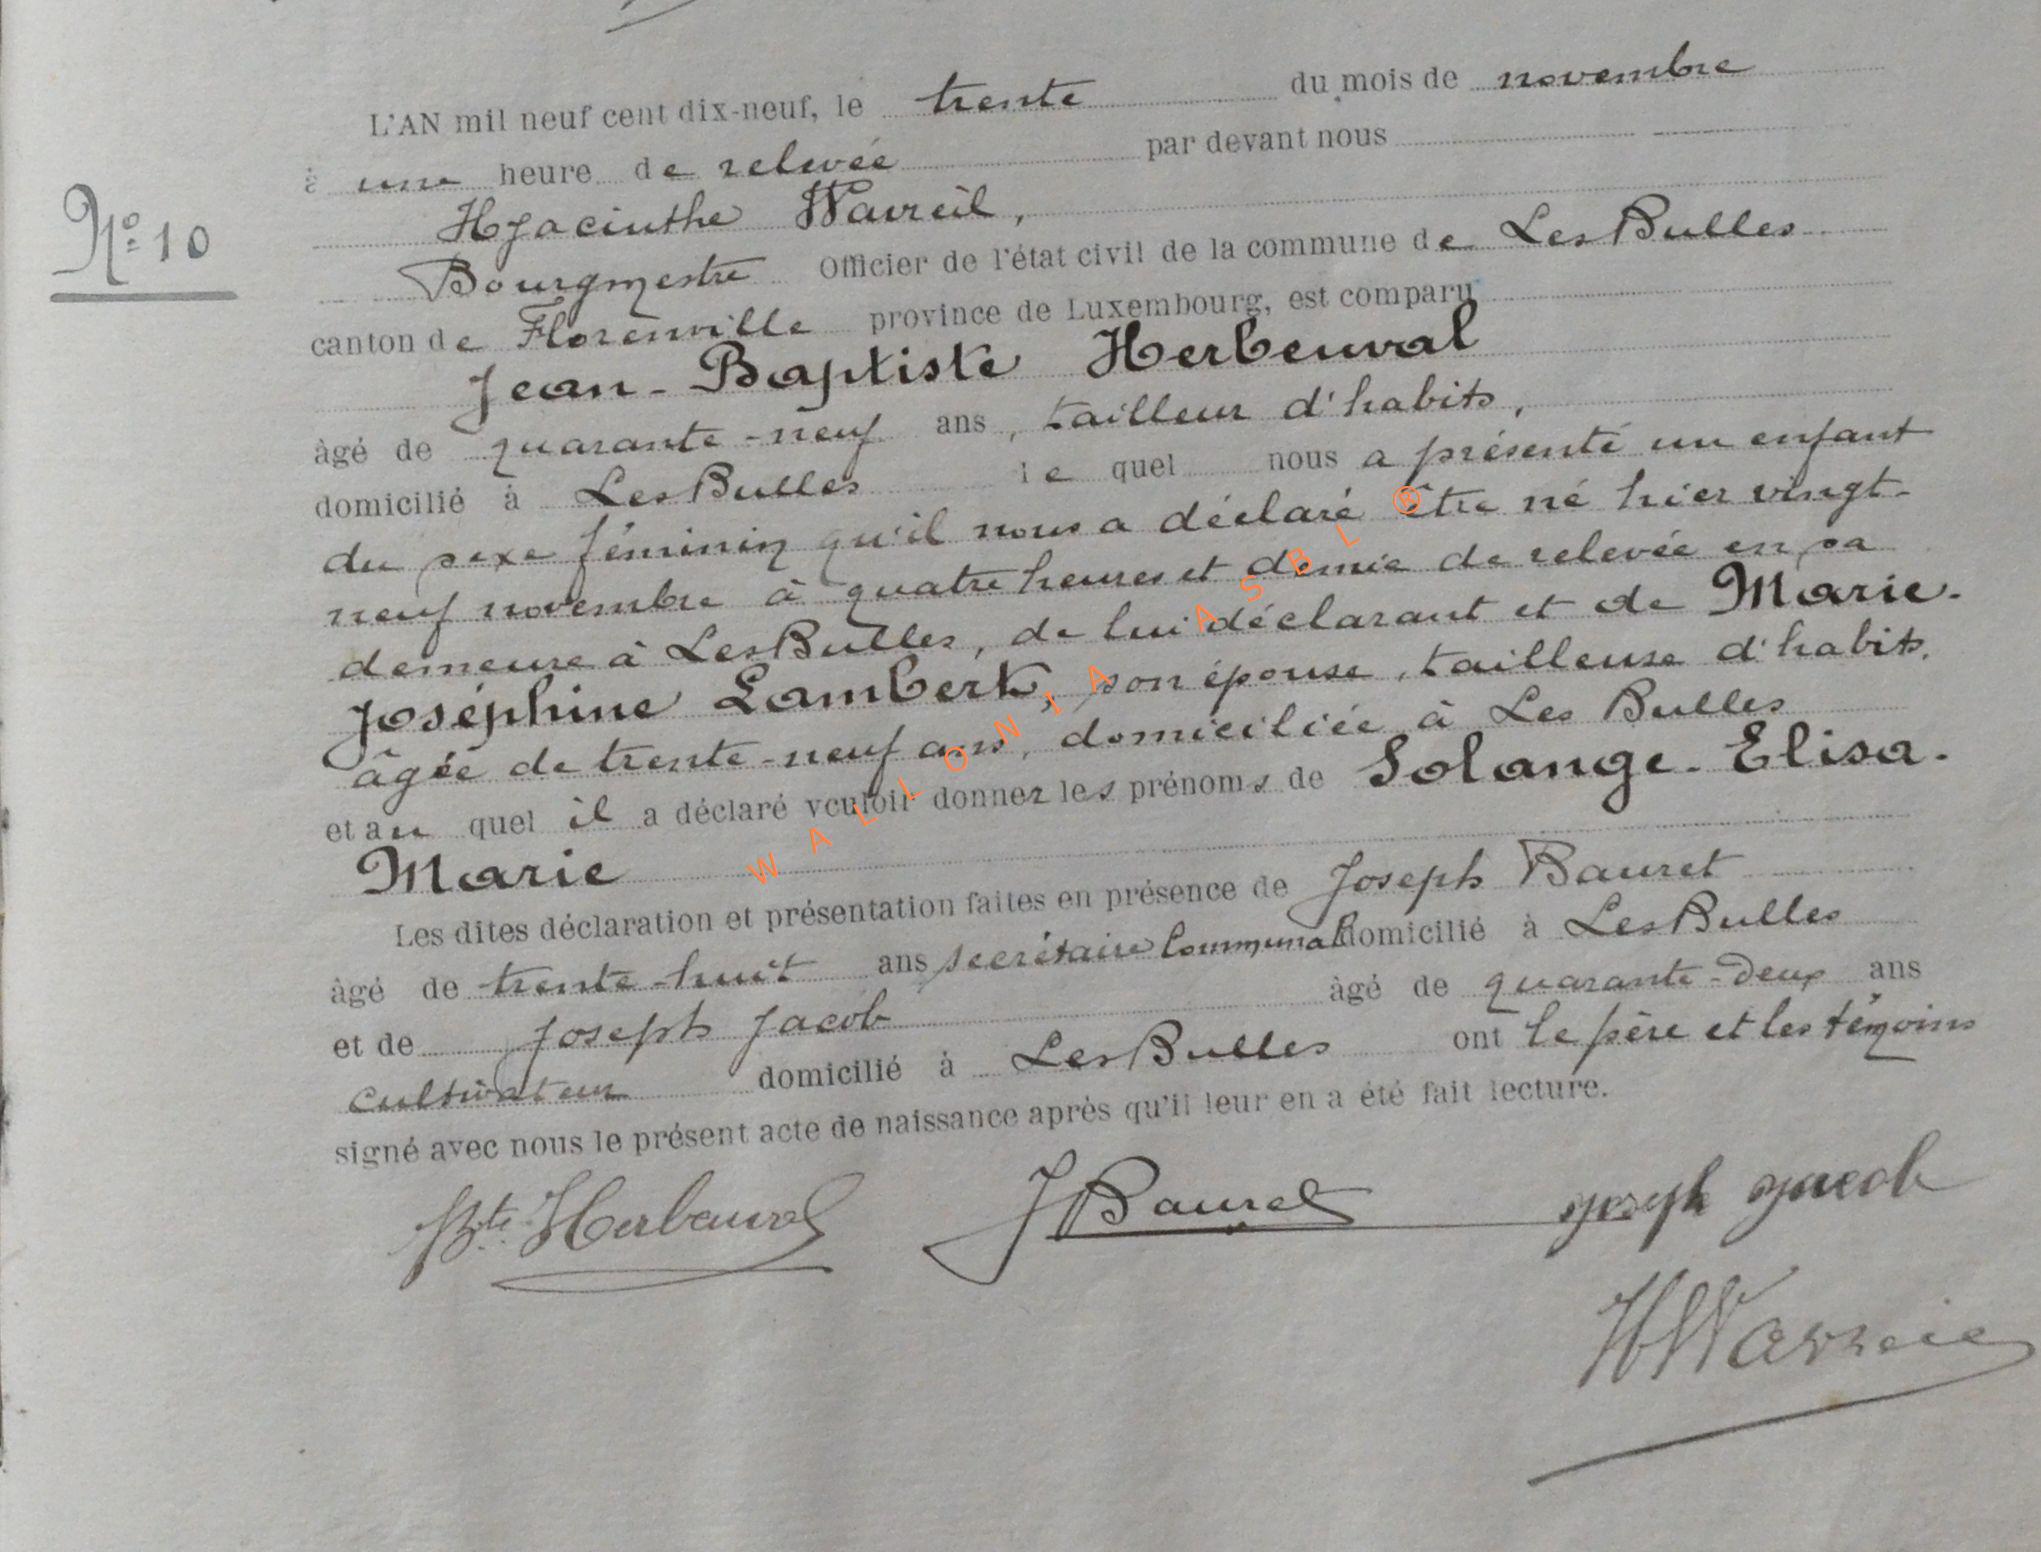 L'AN mil neuf cent dix-neuf, le trente du mois de novembre
à une heure de relevée par devant nous
Nº 10
Hyacinthe Wavreil,
Bourgmestre Officier de l'état civil de la commune de Les Bulles
canton de Florenville province de Luxembourg, est comparu
Jean-Baptiste Herbeuval
âgé de quarante-neuf ans, tailleur d'habits,
domicilié à Les Bulles lequel nous a présenté un enfant
du sexe féminin qu'il nous a déclaré être né hier vingt-
neuf novembre à quatre heures et demie de relevée en sa
demeure à Les Bulles, de lui déclarant et de Marie-
Joséphine Lambert, son épouse, tailleuse d'habits,
âgée de trente-neuf ans, domiciliée à Les Bulles
et au quel il a déclaré vouloir donner les prénoms de Solange-Elisa-
Marie
Les dites déclaration et présentation faites en présence de Joseph Bauret
âgé de trente-huit ans secrétaire Communal domicilié à Les Bulles
et de Joseph Jacob âgé de quarante-deux ans
cultivateur domicilié à Les Bulles ont le père et les témoins
signé avec nous le présent acte de naissance après qu'il leur en a été fait lecture.
Bte Herbeuval J Bauret Joseph Jacob
WALLONIA ASBL ®